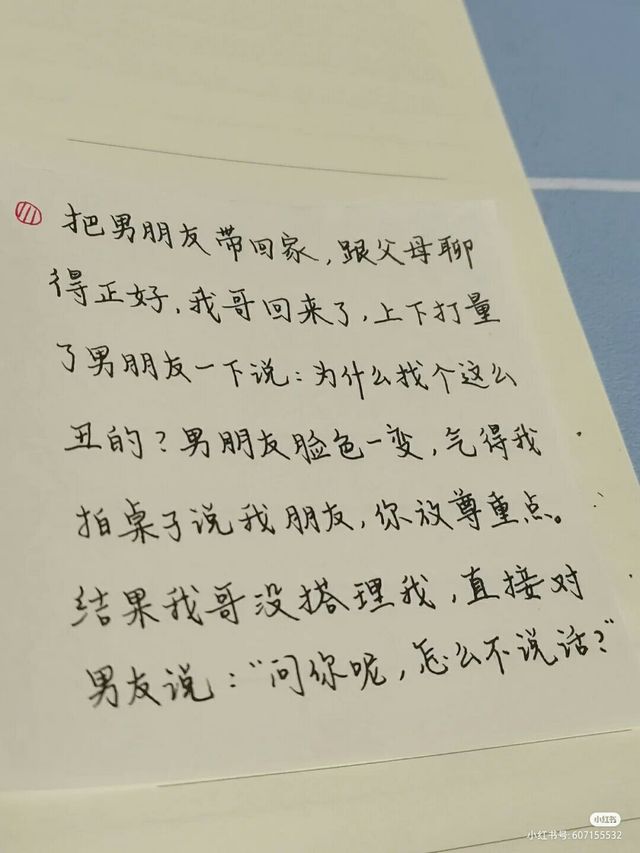 把男朋友带回家，跟父母聊
得正好，我哥回来了，上下打量
了男朋友一下说：为什么找个这么
丑的？男朋友脸色一变，气得我
拍桌子说我朋友，你放尊重点。
结果我哥没搭理我，直接对
男友说：“问你呢，怎么不说话？”
小红书
小红书号:607155532